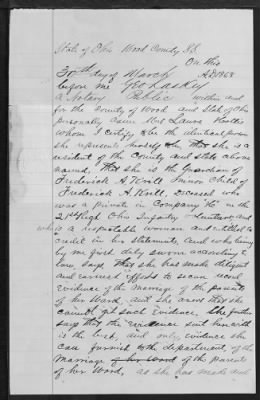 State of Ohio Wood County SS.
On this
30th day of March A.D. 1868
before me Geo Laskey
a Notary Public within and
for the County of Wood and State of Ohio
personally came Mrs Laura
whom I certify to be the identical person
she represents herself to be, that she is a
resident of the County and State above
named, that she is the Guardian of
Frederick A. Minor Child of
Frederick Deceased who
was a private in Company in the
21st Regt Ohio Infantry Volunteers and
who is a respectable person and entitled to
credit in her statements, and who being
by me first duly sworn according to
law, says that she has made diligent
and earnest efforts to secure record
evidence of the marriage of the parents
of her Ward, and she avers that she
cannot get such evidence. She further
says that the evidence sent herewith
is the best, and only, evidence she
can furnish to the department, of the
marriage of her Ward of the parents
of her Ward, as she has made and